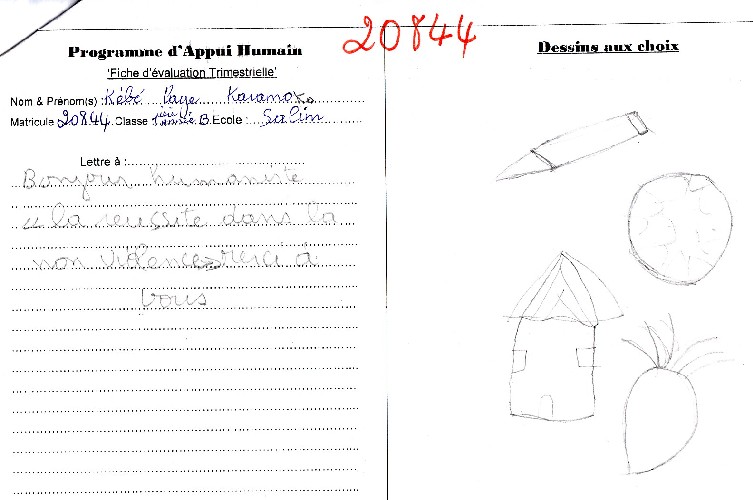 Programme d'Appui Humain
20844
Dessins aux choix
'Fiche d'évaluation Trimestrielle'
Nom & Prénom(s) : Kébé Laye Karamoko
Matricule 20844 Classe 1ère année B. Ecole : Salim
Lettre à :
Bonjour humaniste
la reussite dans la
non violence merci à
vous